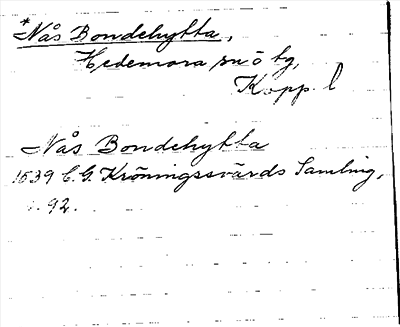 *Nås Bondehytta,
Hedemora sn ö tg,
Kopp. l
Nås Bondehytta
1539 C. G. Kröningssvärds Samling,
92.